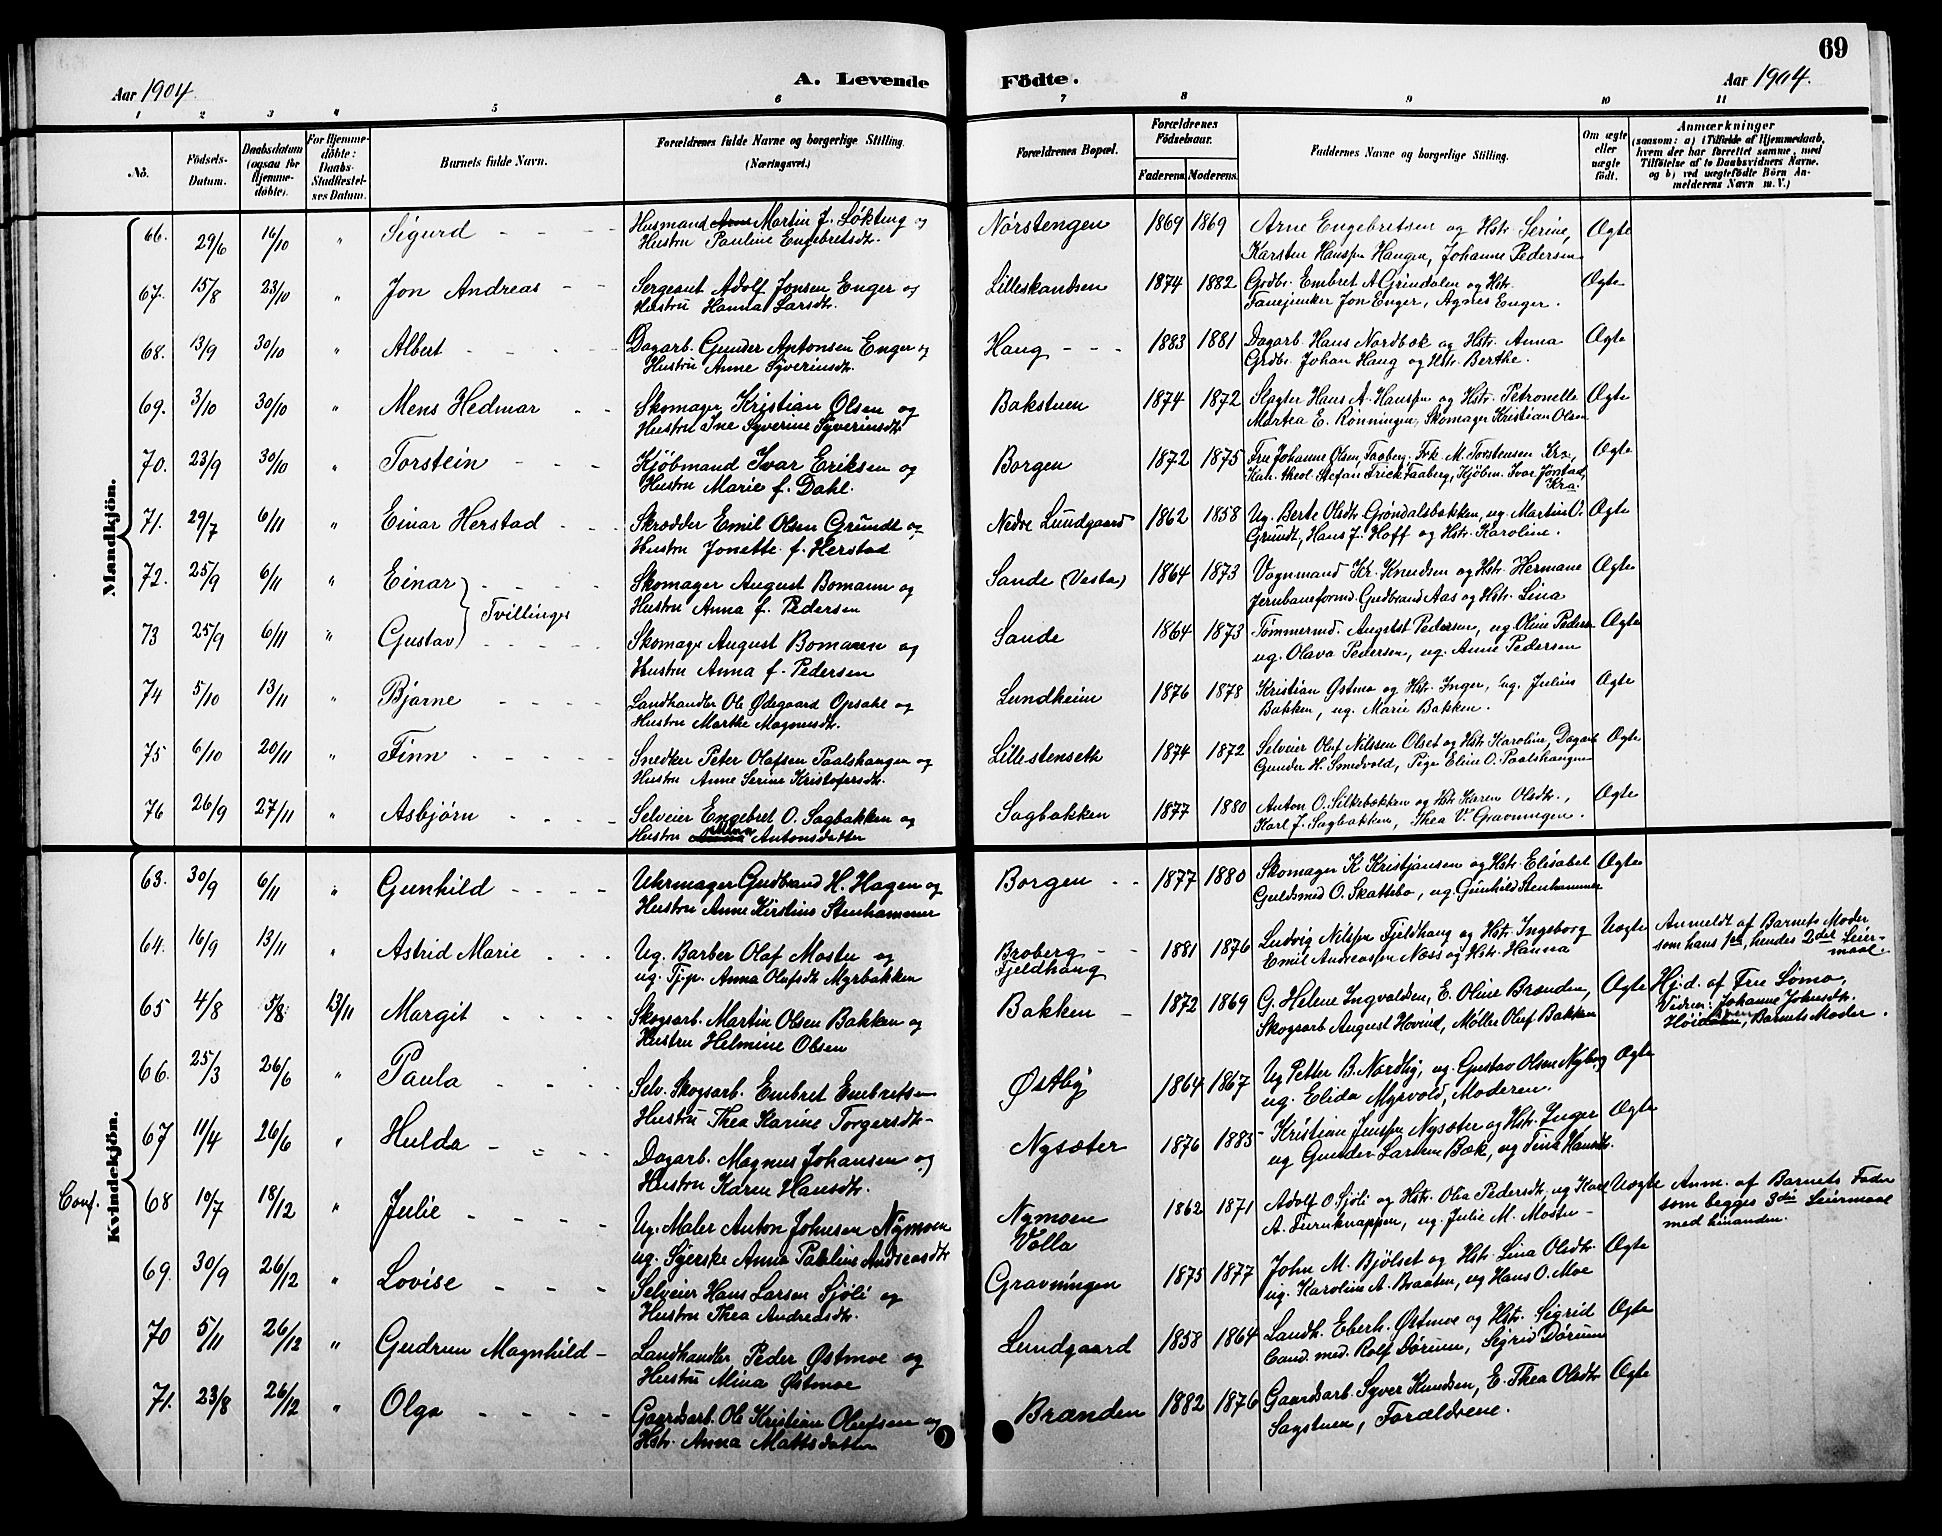 69
Aar 1904.
A. Levende Födte.
Aar 1904.
1 2 3 4 5 6 7 8 9 10 11
No. Födsels-Datum. Daabsdatum (ogsaa for Hjemme-døbte). For Hjemme-døbte: Daabs-Stadfæstelses Datum. Barnets fulde Navn. Forældrenes fulde Navne og borgerlige Stilling. (Næringsvei.) Forældrenes Bopæl. Forældrenes Födselsaar. Faderens. Moderens. Faddernes Navne og borgerlige Stilling. Om ægte eller uægte født. Anmærkninger (saasom: a) i Tilfælde af Hjemmedaab, hvem der har forrettet samme, med Tilföielse af to Daabsvidners Navne. og b) ved uægtefödte Börn Anmelderens Navn m. V.)
Mandkjön.
66. 29/6 16/10 " Sigurd - - - - Husmand Martin J. Løkting og Nørstengen 1869 1869 Arne Engebretsen og Hstr. Serine, Ægte
Hustru Pauline Engebretsdt. Karsten Hanssen Haugen, Johanne Pedersen
67. 15/8 23/10 " Jon Andreas - - Sergeant Adolf Jonsen Enger og Lilleskandsen 1874 1882 Grdbr. Embret A Grindalen og Hstr. Ægte
Hustru Hanna Larsdt. Fanejunker Jon Enger, Agnes Enger.
68. 13/9 30/10 " Albert - - - - Dagarb. Gunder Antonsen Enger og Haug - - - 1883 1881 Dagarb Hans Nordbæk og Hstr. Anna Ægte
Hustru Anne Syverinsdt. Grdbr. Johan Haug og Hstr. Berthe.
69. 3/10 30/10 " Mens Hedmar - - Skomager Kristian Olsen og Bakstuen 1874 1872 Slagter Hans A. Hanssen og Hstr. Petronelle Ægte
Hustru Ine Syverine Syverinsdt. Martea E. Rønningen, Skomager Kristian Olsen
70. 23/9 30/10 " Torstein - - - Kjöbmand Ivar Eriksen og Borgen 1872 1875 Fru Johanne Olsen, Faaberg. Frk. M. Torstensen Kra, Ægte
Hustru Marie f. Dahl. theol. Stefan Frick Faaberg, Kjöbm. Ivar Jorstad, Kra.
71. 29/7 6/11 " Einar Herstad - - - Skrædder Emil Olsen Grundt og Nedre Lundgaard 1862 1858 Ug. Berte Olsdt. Grøndalsbakken, ug. Martin O. Ægte
Hustru Jonette f. Herstad Grundt, Hans J. Hoff og Hstr. Karoline.
72. 25/9 6/11 " Einar } - - - - Skomager August Bomann og Sande (Vesta) 1864 1873 Vognmand Kr. Knudsen og Hstr. Hermane Ægte
Tvillinger Hustru Anna f. Pedersen Jernbaneformd. Gudbrand Aas og Hstr. Lina
73 25/9 6/11 " Gustav } - - - - Skomager August Bomann og Sande 1864 1873 Tømmermd. August Pedersen, ug. Oline Peders Ægte
Hustru Anna f. Pedersen ug. Olava Pedersen, ug. Anne Pedersen
74 5/10 13/11 " Bjarne - - - - Landhandler Ole Ødegaard Opsahl og Lundheim 1876 1878 Kristian Østmo og Hstr. Inger, ug. Julius Ægte
Hustru Marthe Magnusdt. Bakken, ug. Marie Bakken.
75 6/10 20/11 " Finn - - - - - Snedker Peter Olafsen Paalshaugen og Lillestenseth 1874 1872 Selveier Oluf Nilssen Olset og Hstr. Karoline, Dagarb Ægte
Hustru Anne Serine Kristofersdt. Gunder H. Smedvold, Pige Eline O. Paalshaugen
76 26/9 27/11 " Asbjørn - - - - Selveier Engebret O. Sagbakken og Sagbakken 1877 1880 Anton O. Silkebækken og Hstr. Karen Olsdt., Ægte
Hustru Antonsdatter Karl J. Sagbakken, Thea V. Gravningen.
Kvindekjön.
63. 30/9 6/11 " Gunhild - - - - Uhrmager Gudbrand H. Hagen og Borgen - - 1877 1880 Skomager K Kristjansen og Hstr. Elisabet Ægte
Hustru Anne Kirstine Stenhammer Guldsmed O. Skattebo, ug. Gunhild Stenhammer
64. 16/9 13/11 " Astrid Marie - - - Ug. Barber Olaf Mostu og Broberg - - 1881 1876 Ludvig Nilssen Fjeldhaug og Hstr. Ingeborg Uægte Anmeldt af Barnets Moder
ug. Tjp. Anna Olufsdt Myrbakken Fjeldhaug Emil Andreassen Næss og Hstr. Hanna som hans 1ste, hendes 2det Leiermaal.
65 4/8 5/8. 13/11 Margit - - - - Skogsarb. Martin Olsen Bakken og Bakken - 1872 1869 G. Helene Ingvaldsen, E. Oline Brænden, Ægte Hj.d. af Fru Sömo,
Hustru Helmine Olsen Skogsarb August Hovind, Møller Oluf Bakken Vidner: Johanne Johnsdt. , Barnets Moder.
66. 25/3 26/6 " Paula - - - Selv. Skogsarb. Embret Embretsen Østby 1864 1867 Ug Petter B. Nordlig, ug. Gustav Olsen Nyberg Ægte
Hustru Thea Karine Torgersdt. ug. Elida Myrvold, Moderen.
67 11/4 26/6 " Hulda - - - - Dagarb. Magnus Johansen og Nysæter 1876 1883 Kristian Jenssen Nysæter og Hstr. Inger Ægte
Hustru Karen Hansdt. ug Gunder Larssen Bæk, ug Tina Hansdt.
Conf. 68 10/7 18/12 " Julie - - - - Ug. Maler Anton Johnsen Nymoen Nymoen 1862 1871 Adolf O. Sjöli og Hstr. Olea Pedersdt, ug Karl Uægte Anm. af Barnets Fader
ug. Syerske Anna Pauline Andreasdt. Volla A. Furuknappen, ug. Julie M. Mostu - som begges 3die Leiermaal med hinanden.
69. 30/9 26/12 " Lovise - - - Selveier Hans Larsen Sjöli og Gravningen 1875 1877 John M. Bjølset og Hstr. Lina Olsdt. Ægte
Hustru Thea Andreasdt. ug. Karoline A. Braaten, ug Hans O. Moe
70 5/11 26/12 " Gudrun Magnhild - Landhandler Peder Østmoe og Lundgaard 1858 1864 Landh. Eberh. Østmoe og Hstr. Sigrid Ægte
Hustru Mina Østmoe Cand. med. Rolf Dørum, Sigrid Dørum
71. 23/8 26/12 " Olga - - - - Gaardsarb. Ole Kristian Olufsen og Brænden 1882 1876 Gaardsarb. Syver Knudsen, E. Thea Olsdt. Ægte
Hstr. Anna Mattsdatter Sagstuen, Forældrene.